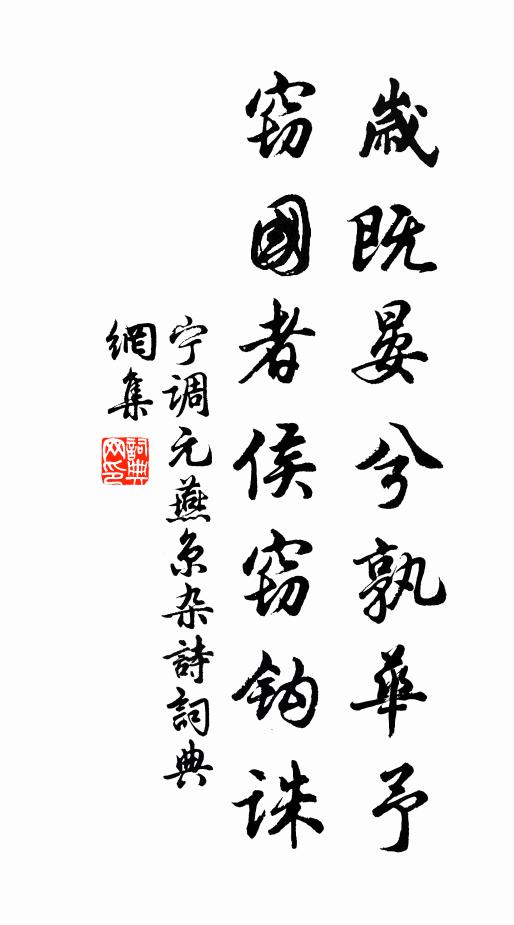 歲既晏兮孰華予
窃國者侯窃鈎誅
宁调元燕京杂詩詞典
網集
詞典网印